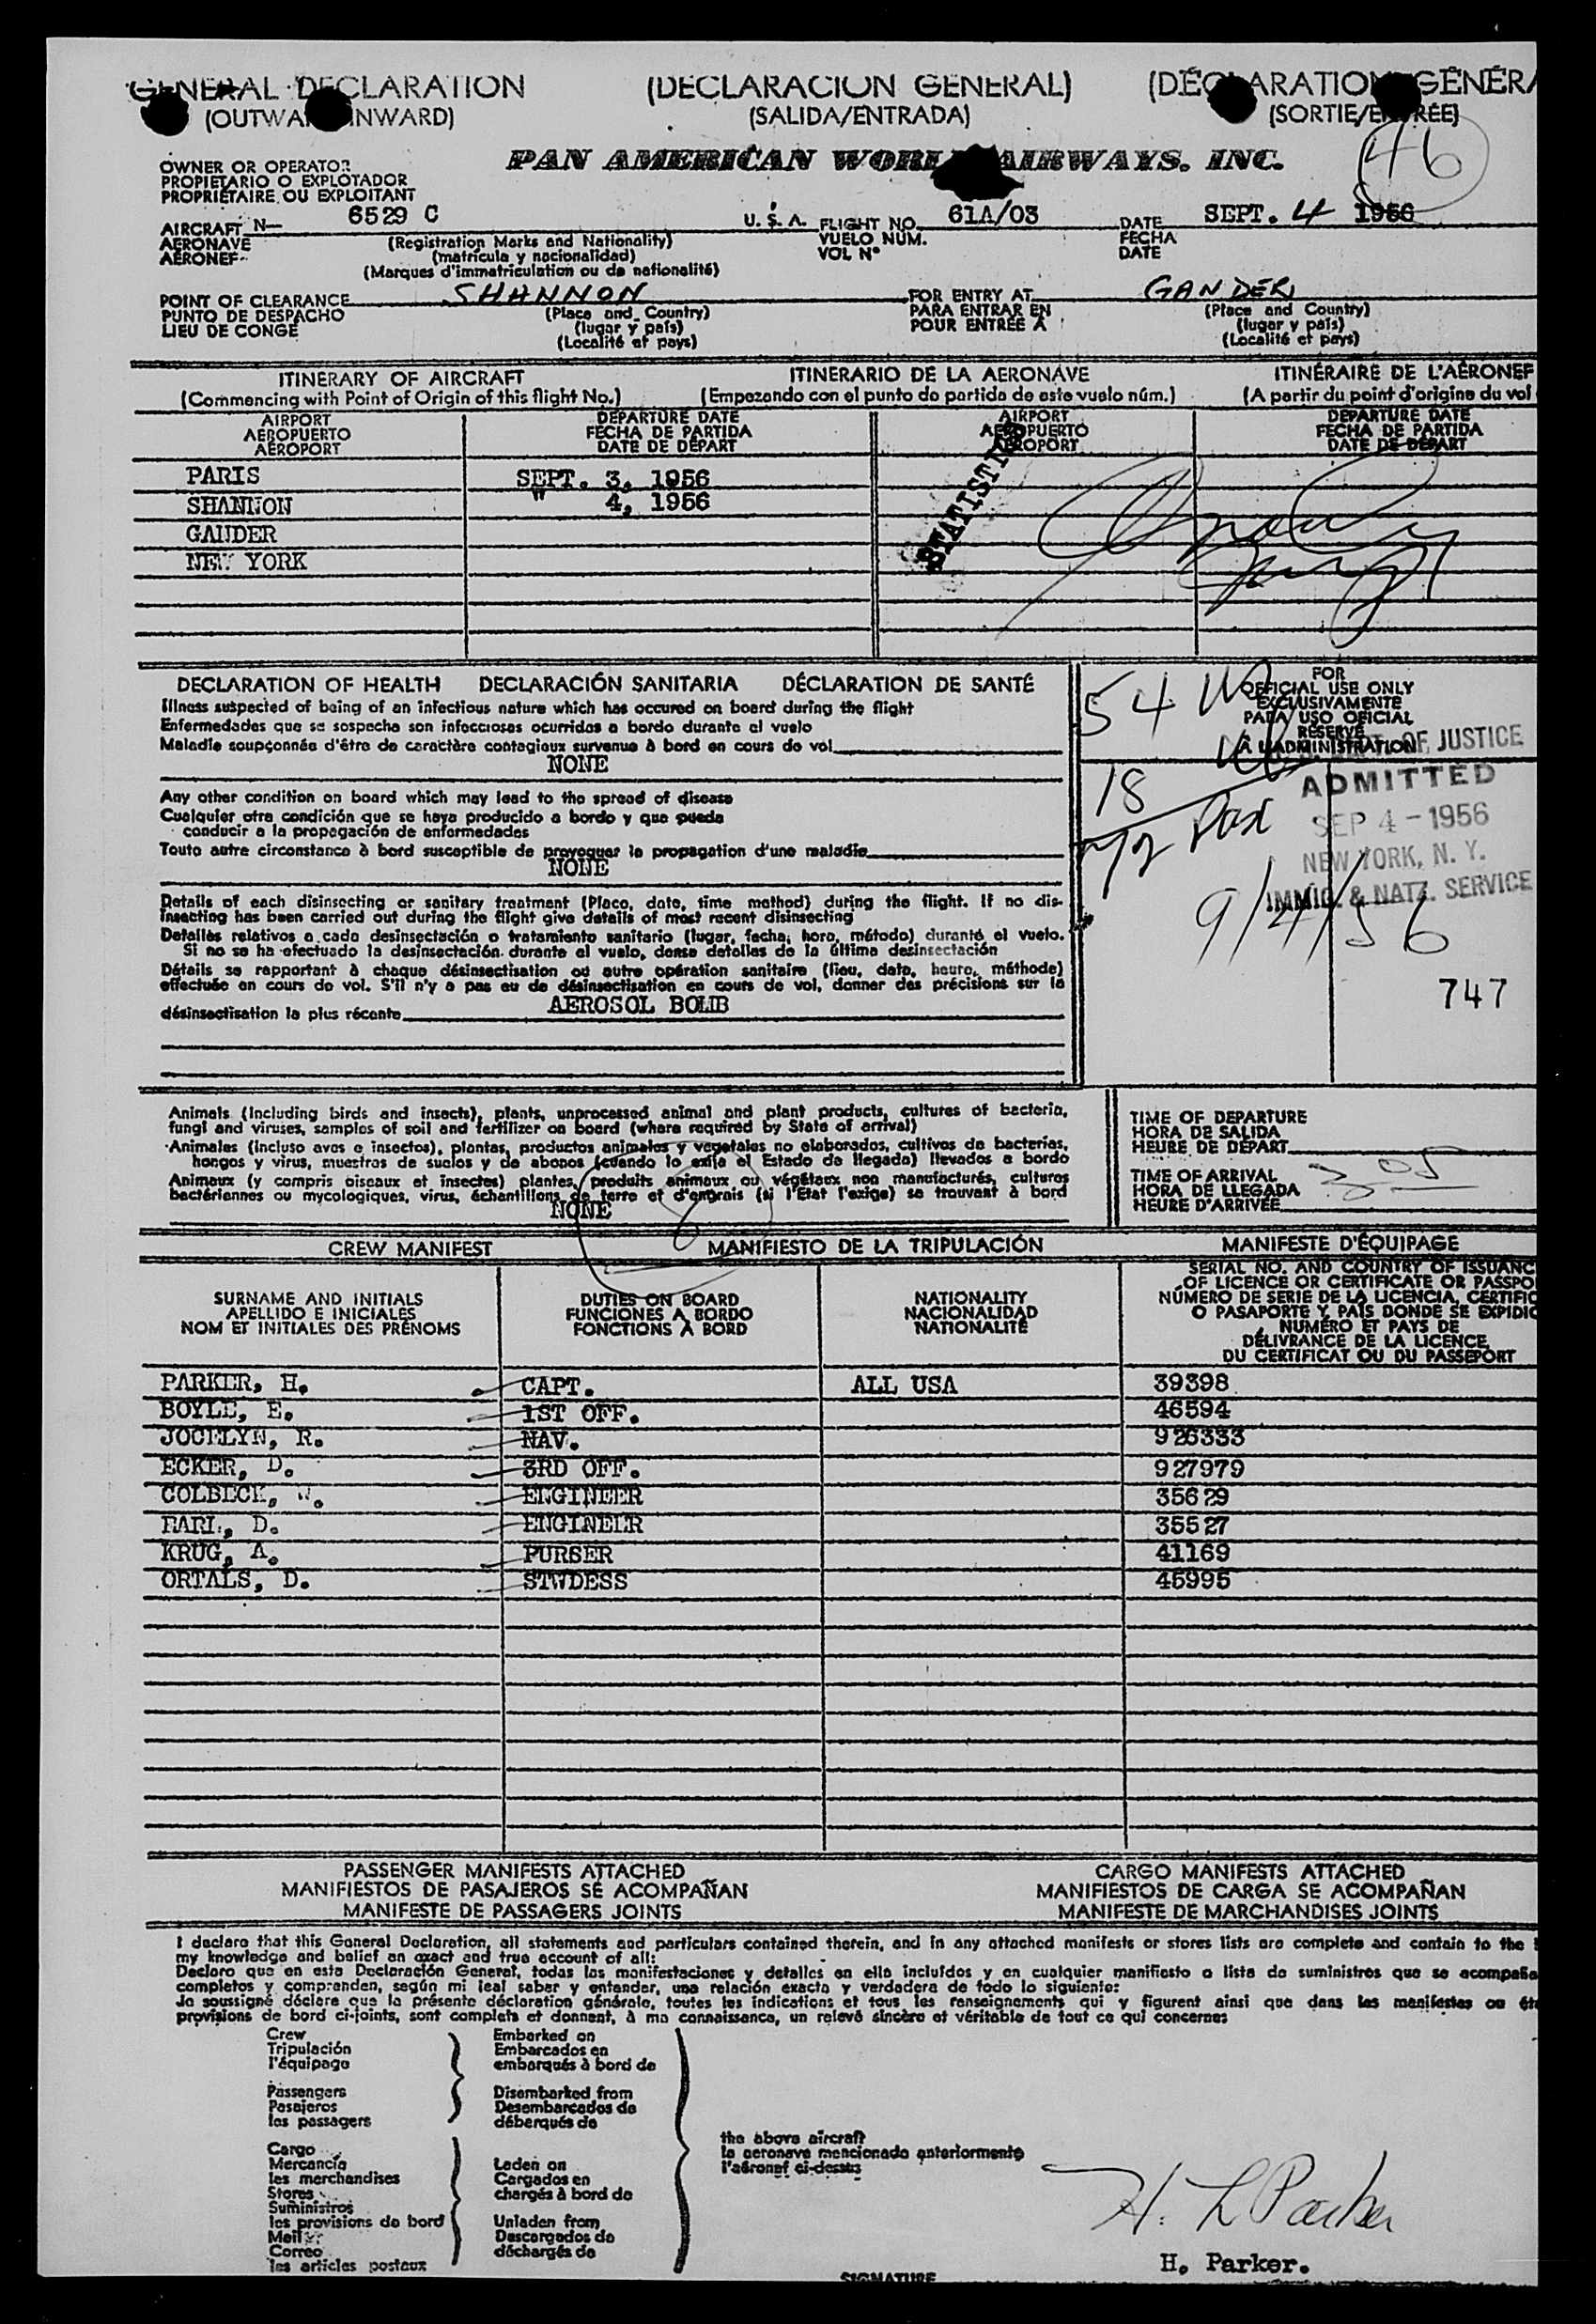 GENERAL DECLARATION (DECLARACION GENERAL) (DÉCLARATION GÉNÉRA
(OUTWARD/INWARD) (SALIDA/ENTRADA) (SORTIE/ENTRÉE)
46
PAN AMERICAN WORLD AIRWAYS. INC.
OWNER OR OPERATOR
PROPIETARIO O EXPLOTADOR
PROPRIÉTAIRE OU EXPLOITANT
AIRCRAFT N— 6529 C U. S. A. FLIGHT NO. 61A/03 DATE SEPT. 4 1956
AERONAVE (Registration Marks and Nationality) VUELO NÚM. FECHA
AÉRONEF (matrícula y nacionalidad) VOL N° DATE
(Marques d'immatriculation ou de nationalité)
POINT OF CLEARANCE SHANNON FOR ENTRY AT GANDER
PUNTO DE DESPACHO (Place and Country) PARA ENTRAR EN (Place and Country)
LIEU DE CONGÉ (lugar y país) POUR ENTRÉE À (lugar y país)
(Localité et pays) (Localité et pays)
ITINERARY OF AIRCRAFT ITINERARIO DE LA AERONAVE ITINÉRAIRE DE L'AÉRONEF
(Commencing with Point of Origin of this flight No.) (Empezando con el punto de partida de este vuelo núm.) (A partir du point d'origine du vol
AIRPORT DEPARTURE DATE AIRPORT DEPARTURE DATE
AEROPUERTO FECHA DE PARTIDA AEROPUERTO FECHA DE PARTIDA
AÉROPORT DATE DE DÉPART AÉROPORT DATE DE DÉPART
PARIS SEPT. 3, 1956
SHANNON " 4, 1956
GANDER
NEW YORK
DECLARATION OF HEALTH DECLARACIÓN SANITARIA DÉCLARATION DE SANTÉ
Illness suspected of being of an infectious nature which has occured on board during the flight
Enfermedades que se sospecha son infecciosas ocurridas a bordo durante el vuelo
Maladie soupçonnée d'être de caractère contagieux survenue à bord en cours de vol
NONE
Any other condition on board which may lead to the spread of disease
Cualquier otra condición que se haya producido a bordo y que pueda
conducir a la propagación de enfermedades
Toute autre circonstance à bord susceptible de provoquer la propagation d'une maladie
NONE
Details of each disinsecting or sanitary treatment (Place, date, time method) during the flight. If no dis-
insecting has been carried out during the flight give details of most recent disinsecting
Detalles relativos a cada desinsectación o tratamiento sanitario (lugar, fecha, hora, método) durante el vuelo.
Si no se ha efectuado la desinsectación durante el vuelo, dense detalles de la última desinsectación
Détails se rapportant à chaque désinsectisation ou autre opération sanitaire (lieu, date, heure, méthode)
effectuée en cours de vol. S'il n'y a pas eu de désinsectisation en cours de vol, donner des précisions sur la
désinsectisation la plus récente AEROSOL BOMB
FOR
OFFICIAL USE ONLY
EXCLUSIVAMENTE
PARA USO OFICIAL
RÉSERVÉ
À L'ADMINISTRATION
54
18
72 Pax
OF JUSTICE
ADMITTED
SEP 4 - 1956
NEW YORK, N. Y.
IMMIG. & NATZ. SERVICE
9/4/56
747
Animals (including birds and insects), plants, unprocessed animal and plant products, cultures of bacteria,
fungi and viruses, samples of soil and fertilizer on board (where required by State of arrival)
Animales (incluso aves e insectos), plantas, productos animales y vegetales no elaborados, cultivos de bacterias,
hongos y virus, muestras de suelos y de abonos (cuando lo exija el Estado de llegada) llevados a bordo
Animaux (y compris oiseaux et insectes) plantes, produits animaux ou végétaux non manufacturés, cultures
bactériennes ou mycologiques, virus, échantillons de terre et d'engrais (si l'Etat l'exige) se trouvant à bord
NONE
TIME OF DEPARTURE
HORA DE SALIDA
HEURE DE DÉPART
TIME OF ARRIVAL 305
HORA DE LLEGADA
HEURE D'ARRIVÉE
CREW MANIFEST MANIFIESTO DE LA TRIPULACIÓN MANIFESTE D'ÉQUIPAGE
SURNAME AND INITIALS
APELLIDO E INICIALES
NOM ET INITIALES DES PRÉNOMS
DUTIES ON BOARD
FUNCIONES A BORDO
FONCTIONS À BORD
NATIONALITY
NACIONALIDAD
NATIONALITÉ
SERIAL NO. AND COUNTRY OF ISSUANC
OF LICENCE OR CERTIFICATE OR PASSPO
NÚMERO DE SERIE DE LA LICENCIA, CERTIFIC
O PASAPORTE Y PAÍS DONDE SE EXPIDIÓ
NUMÉRO ET PAYS DE
DÉLIVRANCE DE LA LICENCE,
DU CERTIFICAT OU DU PASSEPORT
PARKER, H. CAPT. ALL USA 39398
BOYLE, E. 1ST OFF. 46594
JOCELYN, R. NAV. 926333
ECKER, D. 3RD OFF. 927979
COLBECK, W. ENGINEER 35629
EARL, D. ENGINEER 35527
KRUG, A. PURSER 41169
ORTALS, D. STWDESS 45995
PASSENGER MANIFESTS ATTACHED CARGO MANIFESTS ATTACHED
MANIFIESTOS DE PASAJEROS SE ACOMPAÑAN MANIFIESTOS DE CARGA SE ACOMPAÑAN
MANIFESTE DE PASSAGERS JOINTS MANIFESTE DE MARCHANDISES JOINTS
I declare that this General Declaration, all statements and particulars contained therein, and in any attached manifests or stores lists are complete and contain to the
my knowledge and belief an exact and true account of all:
Declaro que en esta Declaración General, todas las manifestaciones y detalles en ella incluídos y en cualquier manifiesto o lista de suministros que se acompaña
completos y comprenden, según mi leal saber y entender, una relación exacta y verdadera de todo lo siguiente:
Je soussigné déclare que la présente déclaration générale, toutes les indications et tous les renseignements qui y figurent ainsi que dans les manifestes ou éta
provisions de bord ci-joints, sont complets et donnent, à ma connaissance, un relevé sincère et véritable de tout ce qui concerne:
Crew Embarked on
Tripulación Embarcados en
l'équipage embarqués à bord de
Passengers Disembarked from
Pasajeros Desembarcados de
les passagers débarqués de
the above aircraft
la aeronave mencionada anteriormente
l'aéronef ci-dessus
Cargo
Mercancía Laden on
les merchandises Cargados en
Stores chargés à bord de
Suministros
les provisions de bord Unladen from
Mail Descargados de
Correo déchargés de
les articles postaux
H. L Parker
H. Parker.
SIGNATURE
STATISTIC